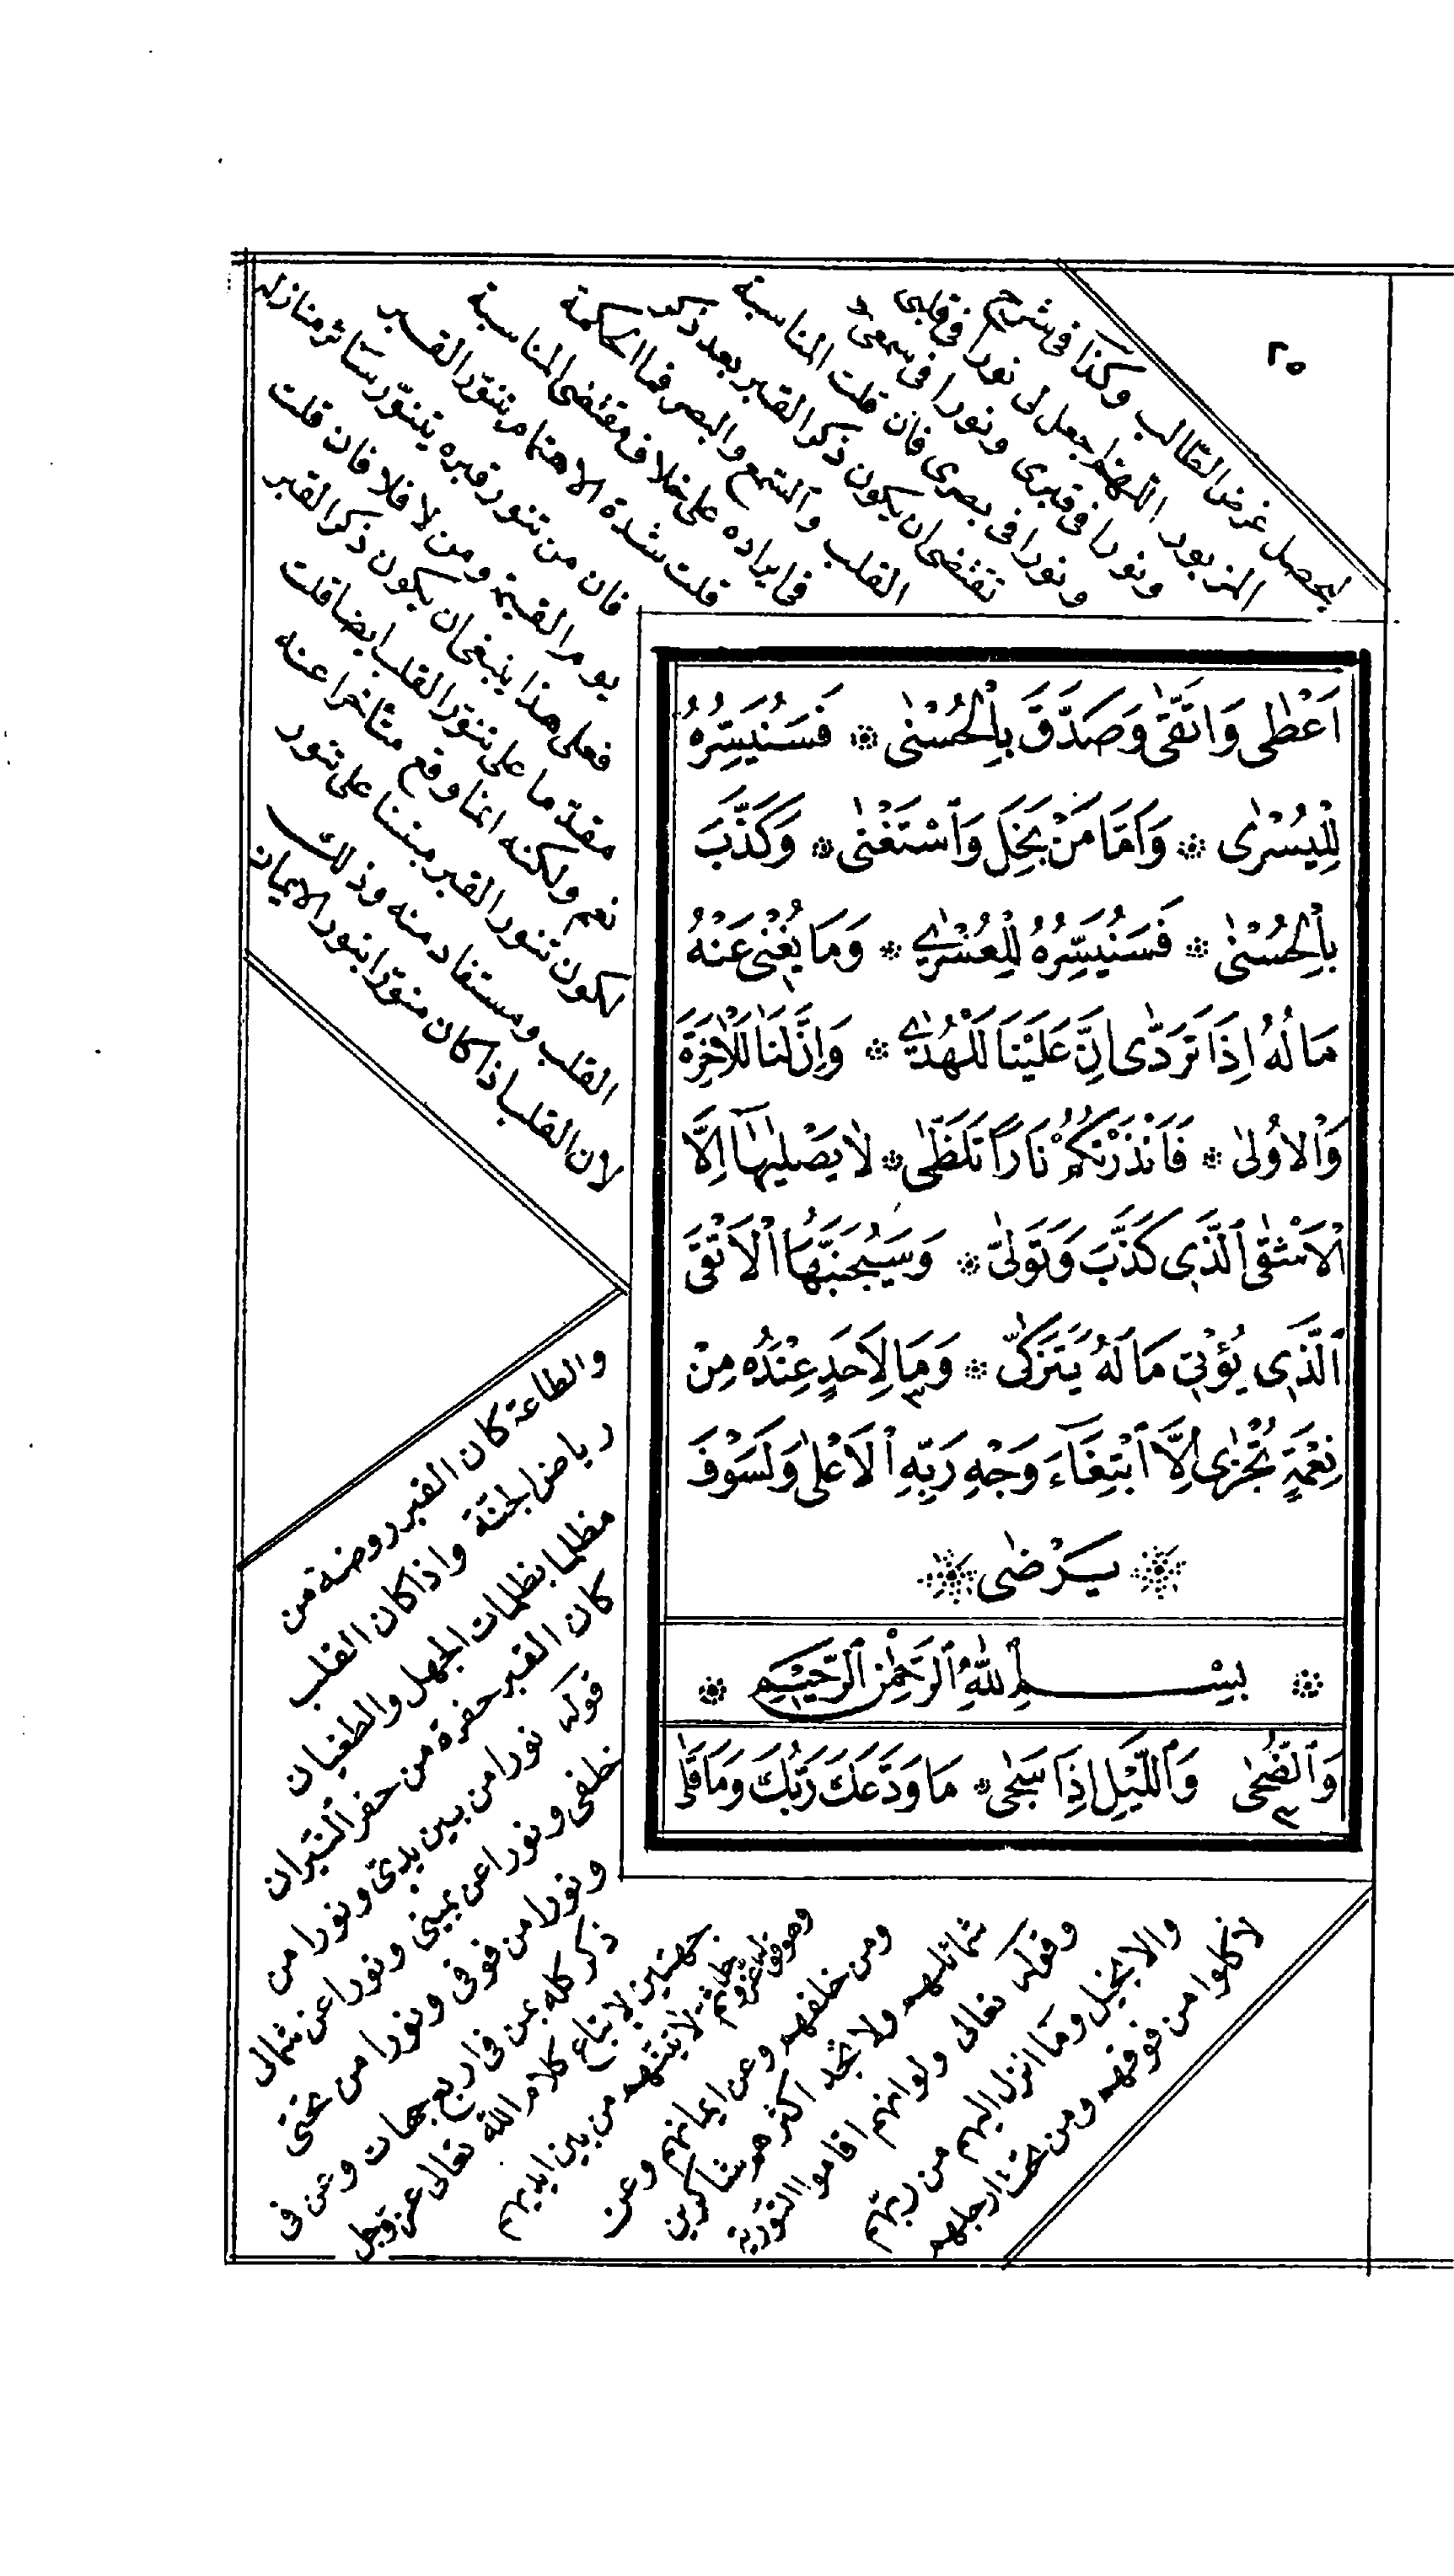 ٢٥
اَعْطٰى وَاتَّقٰى وَصَدَّقَ بِالْحُسْنٰى ۞ فَسَنُيَسِّرُهُ
لِلْيُسْرٰى ۞ وَاَمَّا مَنْ بَخِلَ وَاسْتَغْنٰى ۞ وَكَذَّبَ
بِالْحُسْنٰى ۞ فَسَنُيَسِّرُهُ لِلْعُسْرٰى ۞ وَمَا يُغْنٖى عَنْهُ
مَالُهُ اِذَا تَرَدّٰى اِنَّ عَلَيْنَا لَلْهُدٰى ۞ وَاِنَّ لَنَا لَلْاٰخِرَةَ
وَالْاُولٰى ۞ فَاَنْذَرْتُكُمْ نَارًا تَلَظّٰى ۞ لَا يَصْلٰيهَٓا اِلَّا
الْاَشْقٰى الَّذٖى كَذَّبَ وَتَوَلّٰى ۞ وَسَيُجَنَّبُهَا الْاَتْقَى
الَّذٖى يُؤْتٖى مَالَهُ يَتَزَكّٰى ۞ وَمَا لِاَحَدٍ عِنْدَهُ مِنْ
نِعْمَةٍ تُجْزٰى اِلَّا ابْتِغَٓاءَ وَجْهِ رَبِّهِ الْاَعْلٰى وَلَسَوْفَ
۞ يَرْضٰى ۞
۞ بِسْمِ اللّٰهِ الرَّحْمٰنِ الرَّحٖيمِ ۞
وَالضُّحٰى وَالَّيْلِ اِذَا سَجٰى ۞ مَا وَدَّعَكَ رَبُّكَ وَمَا قَلٰى
ليحصل غرض الطالب وكذا فى شرح
المزبور اللهم اجعل لى نورا فى قلبى
ونورا فى قبرى ونورا فى سمعى
ونورا فى بصرى فان قلت المناسبة
تقتضى ان يكون ذكر القبر بعد ذكر
القلب والسمع والبصر فما الحكمة
فى ايراده على خلاف مقتضى المناسبة
قلت شدة الاهتمام بتنور القبر
فان من تنور قبره يتنور سائر منازله
يوم القيمة ومن لا فلا فان قلت
فعلى هذا ينبغى ان يكون ذكر القبر
مقدما على تنور القلب ايضا قلت
نعم ولكنه انما وقع متأخرا عنه
لكون تنور القبر مبنيا على تنور
القلب ومستفاد منه وذلك
لان القلب اذا كان منورا بنور الايمان
والطاعة كان القبر روضة من
رياض الجنة واذا كان القلب
مظلما بظلمات الجهل والطغيان
كان القبر حفرة من حفر النيران
قوله نورا من بين يدى ونورا من
خلفى ونورا عن يمينى ونورا عن شمالى
ونورا من فوقى ونورا من تحتى
ذكر كله عن فى اربع جهات وعن فى
جهتين لاتباع كلام الله تعالى عز وجل
وهو قوله عز وجل ثم لآتينهم من بين ايديهم
ومن خلفهم وعن ايمانهم وعن
شمائلهم ولا تجد اكثرهم شاكرين
وقوله تعالى ولو انهم اقاموا التورية
والانجيل وما انزل اليهم من ربهم
لاكلوا من فوقهم ومن تحت ارجلهم